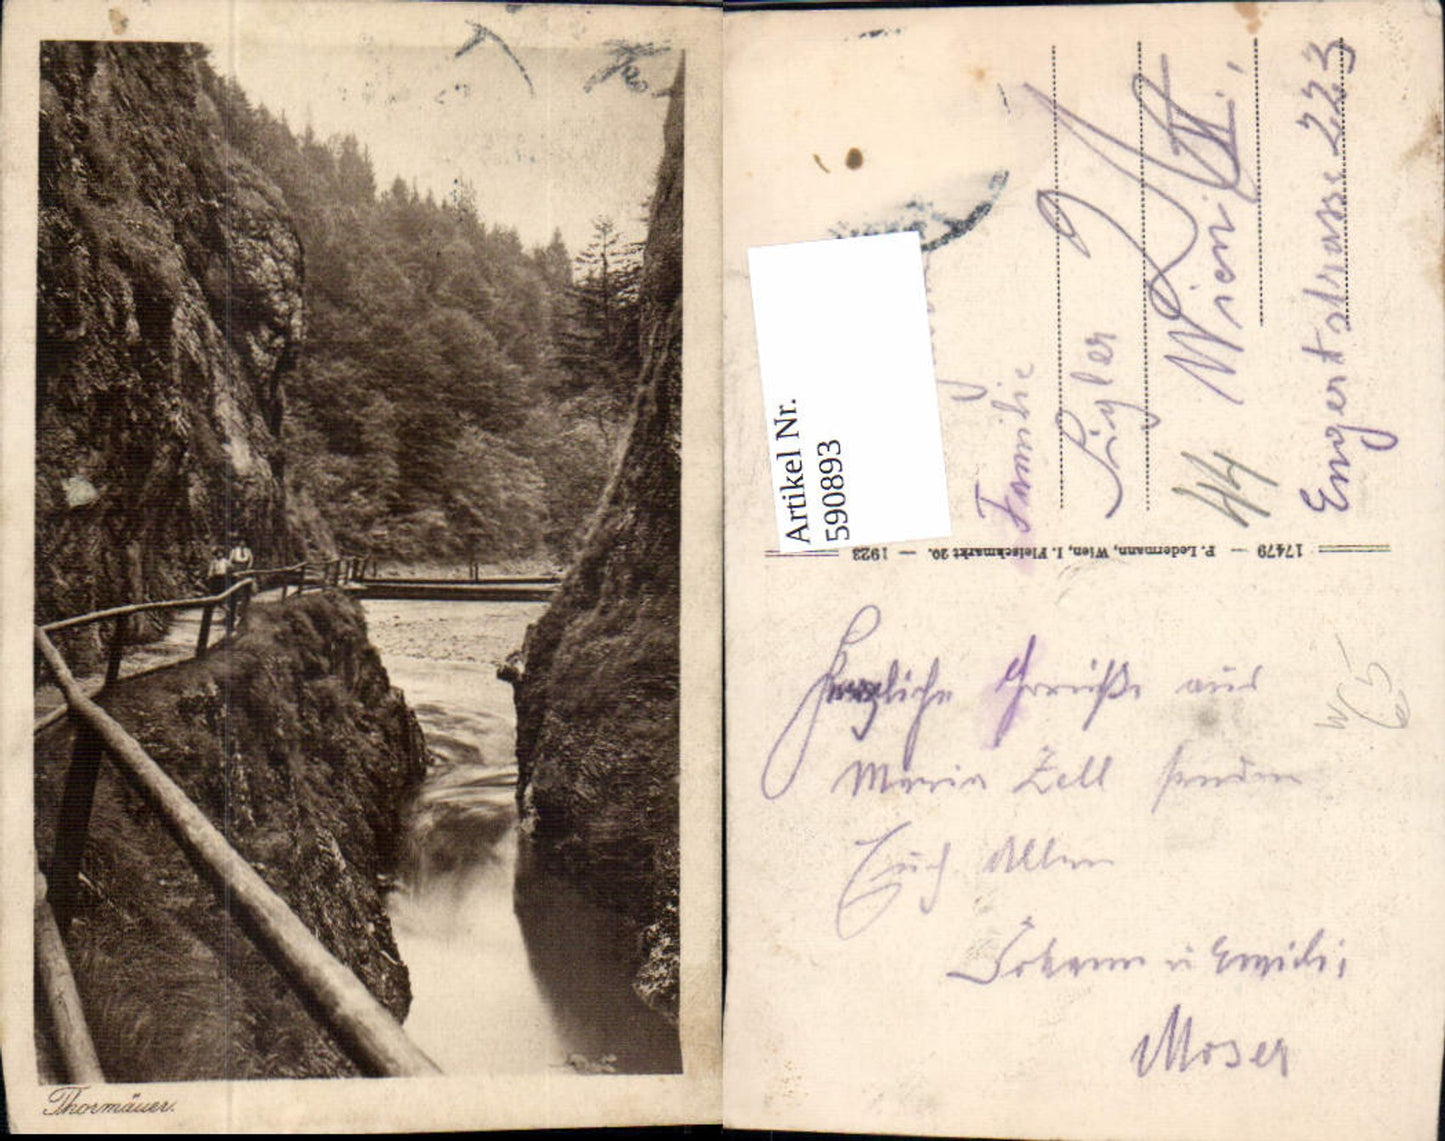 Thormäuer.
Artikel Nr.
590893
Familie
Sigler
44 Wien
Engertstrasse 223
17479 — P. Ledermann, Wien, I. Fleischmarkt 20. — 1923
Herzliche Grüße aus
Maria Zell senden
Euch Allen
Johann u Emilie
Moser
W
65